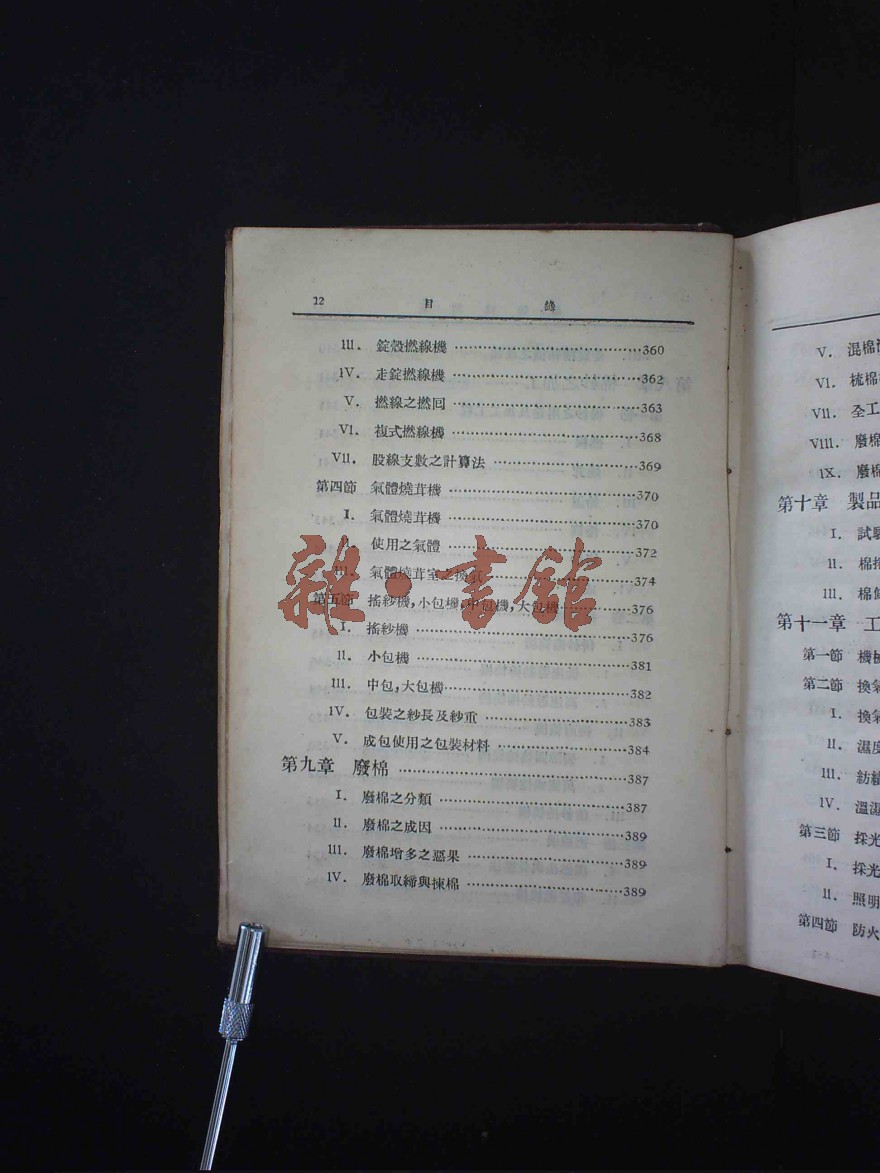 12 目 錄
III. 錠殼撚線機 ………360
IV. 走錠撚線機 ………362
V. 撚線之撚囘 ………363
VI. 複式撚線機 ………368
VII. 股線支數之計算法 ………369
第四節 氣體燒茸機 ………370
I. 氣體燒茸機 ………370
II. 使用之氣體 ………372
III. 氣體燒茸室之換氣 ………374
第五節 搖紗機,小包機,中包機,大包機 ………376
I. 搖紗機 ………376
II. 小包機 ………381
III. 中包,大包機 ………382
IV. 包裝之紗長及紗重 ………383
V. 成包使用之包裝材料 ………384
第九章 廢棉 ………387
I. 廢棉之分類 ………387
II. 廢棉之成因 ………389
III. 廢棉增多之惡果 ………389
IV. 廢棉取締與揀棉 ………389
雜·書館
V. 混棉
VI. 梳棉
VII. 全工
VIII. 廢棉
IX. 廢棉
第十章 製品
I. 試驗
II. 棉
III. 棉
第十一章 工
第一節 機械
第二節 換氣
I. 換氣
II. 濕度
III. 紡績
IV. 溫濕
第三節 採光
I. 採光
II. 照明
第四節 防火